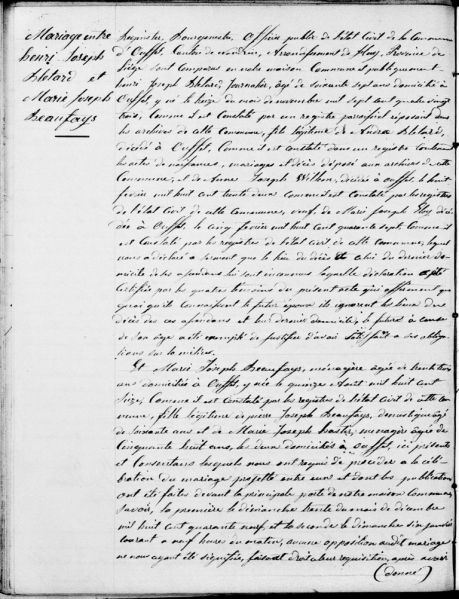 Mariage entre
henri Joseph
Blelard et
Marie Joseph
Beaufays
Bourgmestre, Officier public de l'état civil de la Commune
d'Ouffet, Canton de nandrin, Arrondissement de Huy, Province de
liège sont comparus en notre maison Communale publiquement
henri Joseph Blelard, Journalier, âgé de soixante sept ans domicilié à
Ouffet, y né le seize du mois de novembre mil sept cent quatre vingt
trois, Comme il est Constaté par un registre paroissial reposant dans
les archives de cette Commune, fils légitime de André Blelard,
décédé à Ouffet, Comme il est constaté dans un registre contenant
les actes de naissances, mariages et décès déposé aux archives de cette
Commune, et de Anne Joseph Wilkin, décédée à ouffet le huit
fevrier mil huit cent trente deux Comme il est Constaté par les registres
de l'état Civil de cette Commune, veuf de Marie Joseph
à Ouffet, le cinq fevrier mil huit Cent quarante sept, Comme il
est Constaté par les registres de l'état civil de cette commune, lequel
nous a déclaré à serment que le lieu du décès et celui du dernier do-
micile de ses ascendans lui sont inconnus laquelle déclaration
Certifiée par les quatre témoins du présent acte qui affirment que
quoiqu'ils Connaissent le futur époux ils ignorent les lieux des
décès des ces ascendans et leur dernier domicile, le futur à cause
de son âge a été exempté de justifier d'avoir satisfait à ses obliga-
tions sur la milice.
Et Marie Joseph Beaufays, ménagère âgée de trente trois
ans domiciliée à Ouffet, y née le quinze Août mil huit cent
seize, Comme il est Constaté par les registres de l'état Civil de cette com-
mune, fille légitime de pierre Joseph Beaufays, domestique âgé
de soixante ans et de Marie Joseph, ménagère âgée de
Cinquante huit ans, les deux domiciliés à ouffet, ici présents
et Consentans lesquels nous ont requis de procéder à la célé-
bration du mariage projetté entre eux et dont les publications
ont été faites devant la principale porte de notre maison Commune,
savoir, la première le dimanche trente du mois de décembre
mil huit cent quarante neuf, et la seconde le dimanche six janvier
courant à neuf heures du matin, aucune opposition audit mariage
ne nous ayant été signifiée, faisant droit à leur requisition, après avoir
(donné)